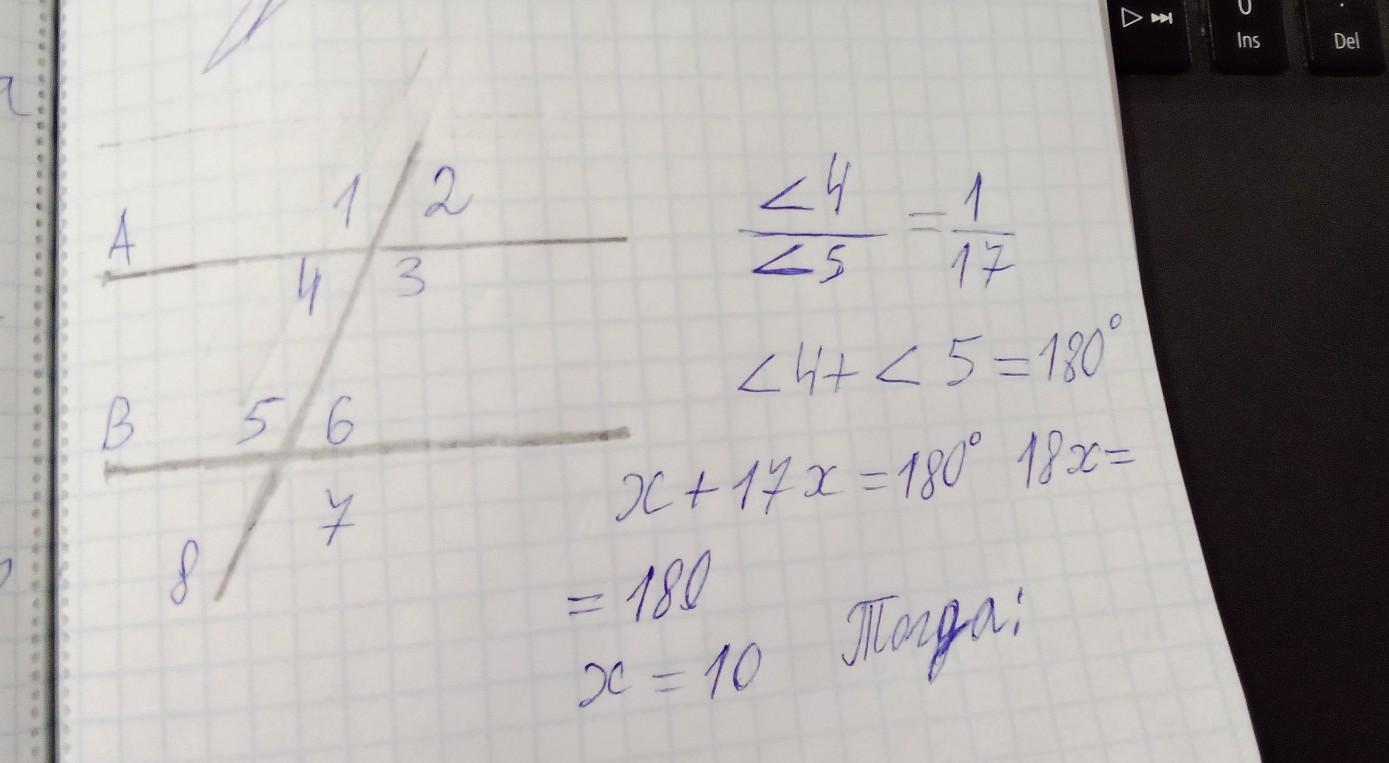 Ins
Del
1 2
A
4 3
B 5 6
7
8
<4 / <5 = 1 / 17
<4 + <5 = 180°
x + 17x = 180° 18x =
= 180
x = 10 Тогда: